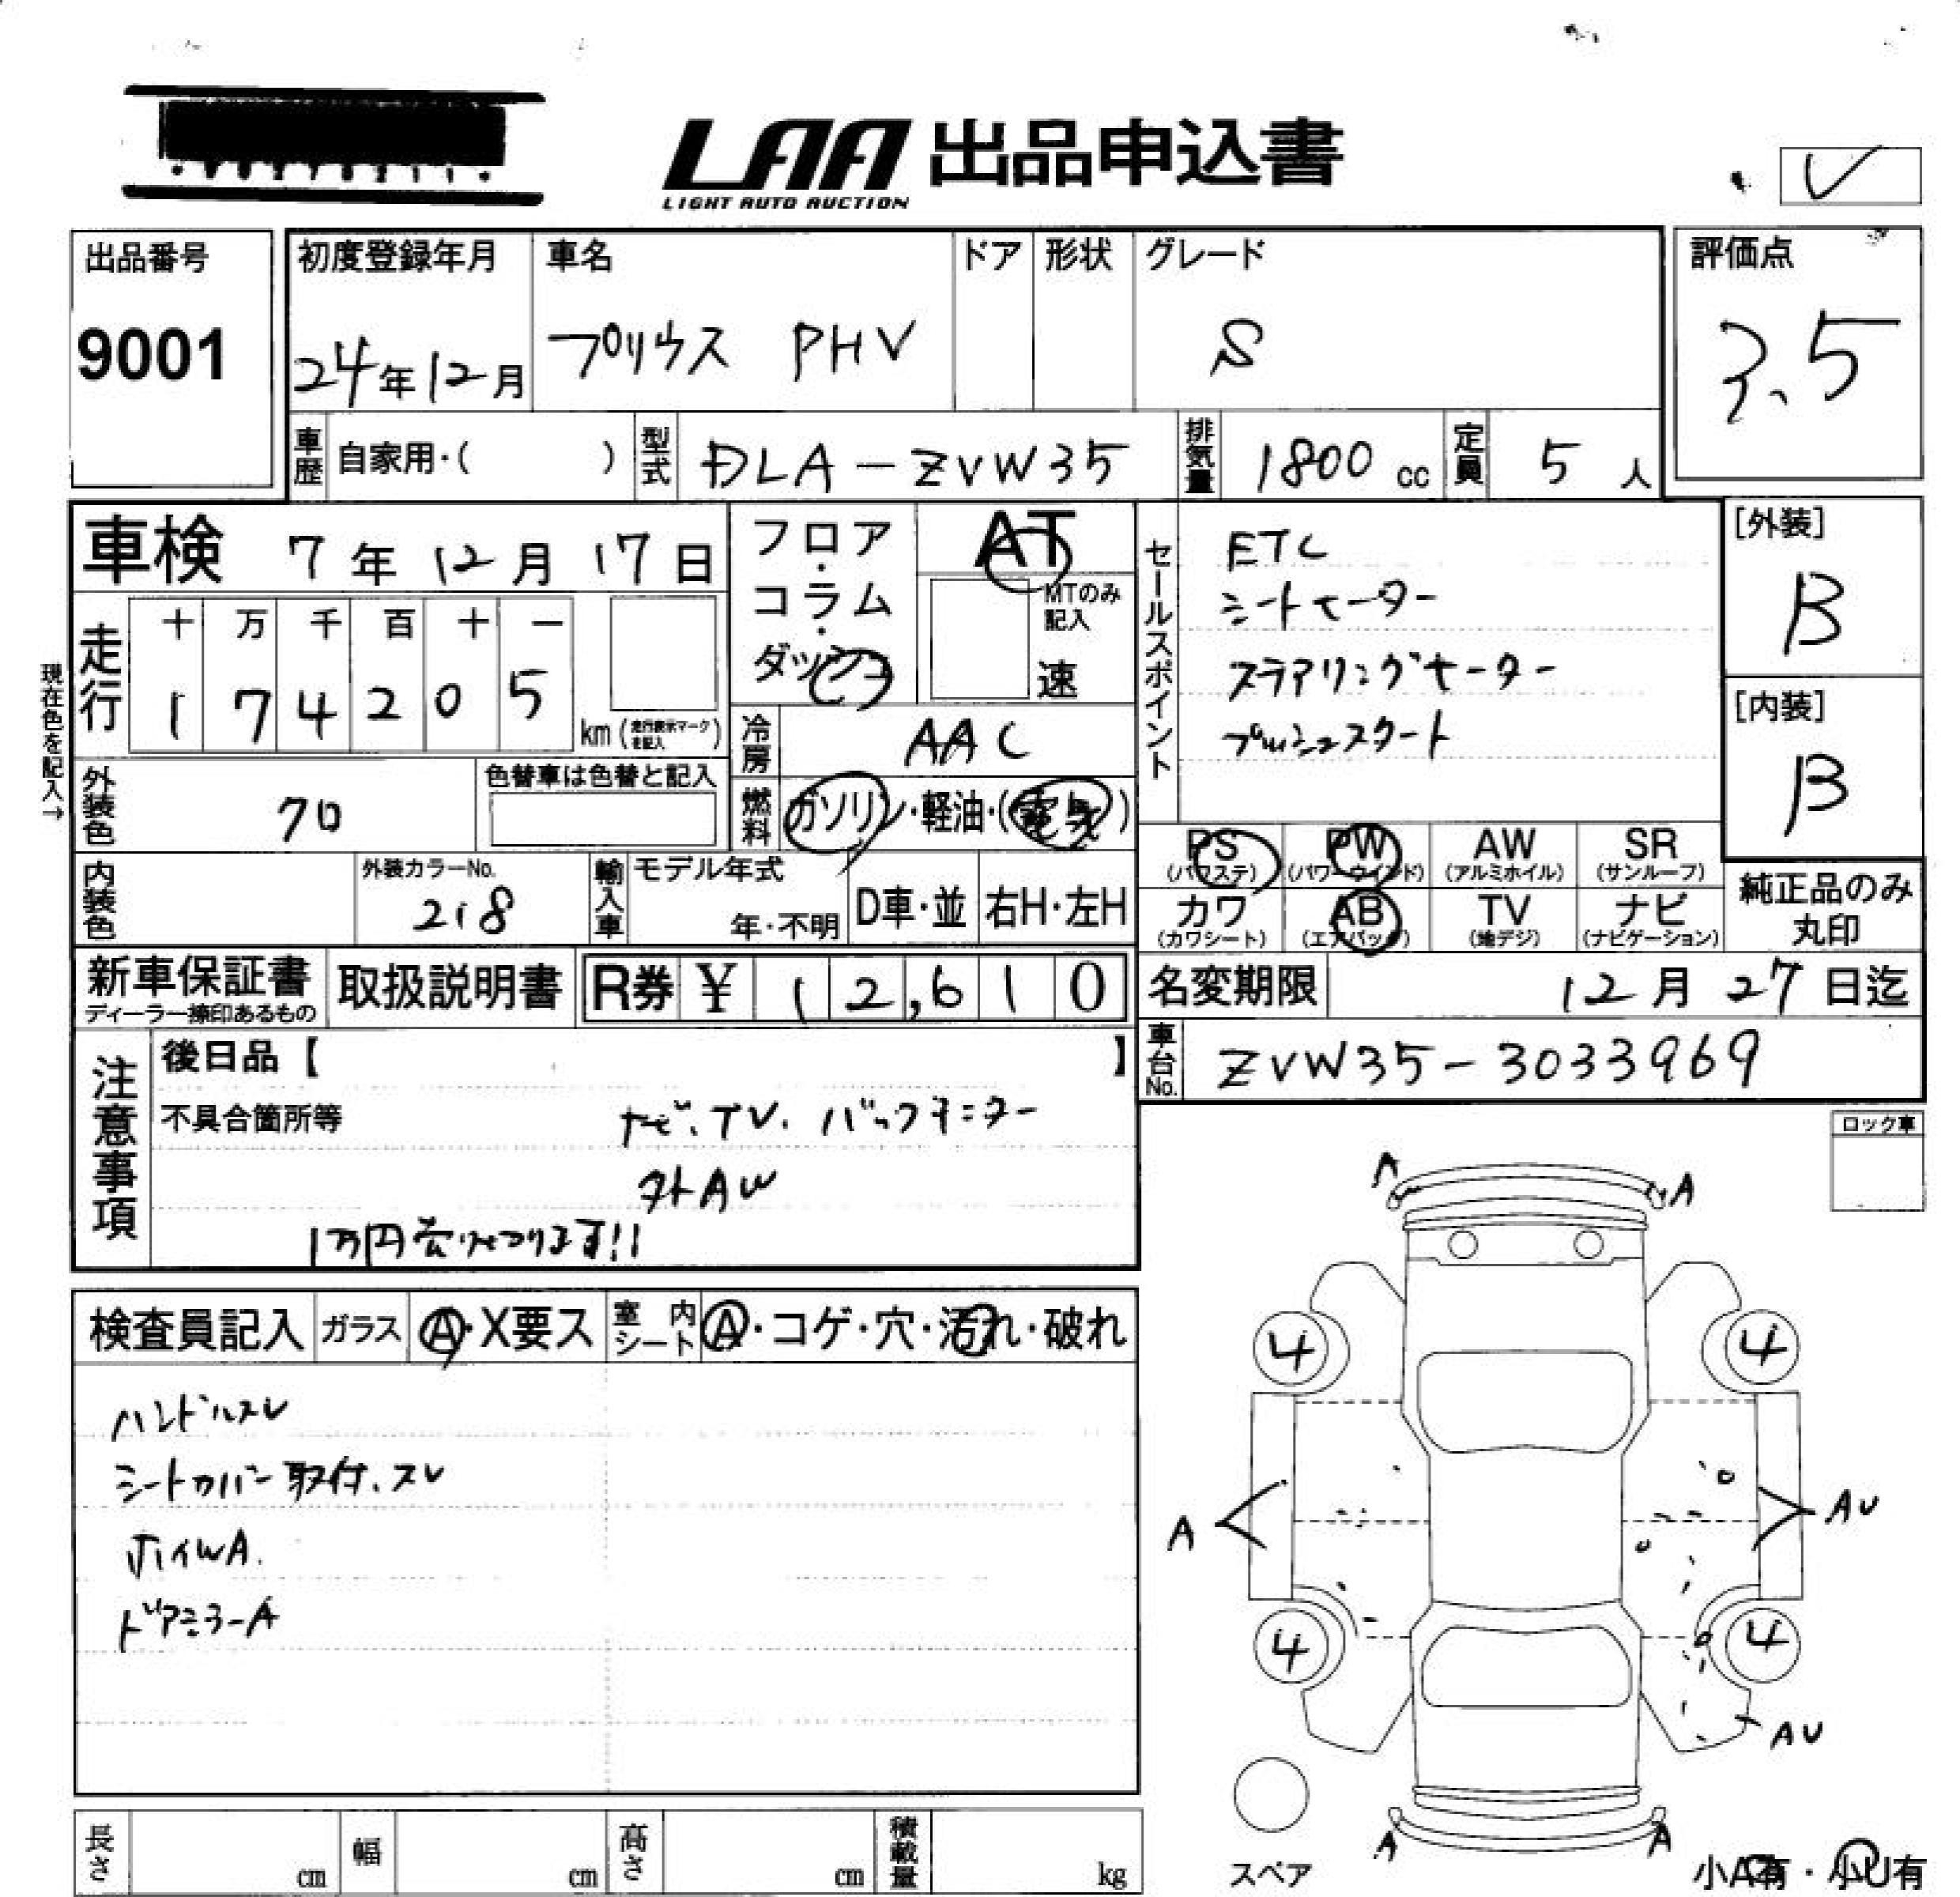 LAA 出品申込書
LIGHT AUTO AUCTION
レ
出品番号 初度登録年月 車名 ドア 形状 グレード 評価点
9001 24年12月 プリウス PHV S 3.5
車歴 自家用・( ) 型式 DLA-ZVW35 排気量 1800 cc 定員 5 人
車検 7年12月17日
フロア・コラム・ダッシュ
AT
MTのみ記入
速
セールスポイント
ETC
シートヒーター
ステアリングヒーター
プッシュスタート
[外装]
B
[内装]
B
現在色を記入→
走行 十 万 千 百 十 一
1 7 4 2 0 5 km (走行表示マークを記入)
冷房 AAC
外装色 クロ 色替車は色替と記入
燃料 ガソリン・軽油・(電気)
PS (パワステ) PW (パワーウインド) AW (アルミホイル) SR (サンルーフ)
カワ (カワシート) AB (エアバッグ) TV (地デジ) ナビ (ナビゲーション)
純正品のみ丸印
内装色 外装カラーNo. 218 輸入車 モデル年式 年・不明 D車・並 右H・左H
新車保証書 ディーラー捺印あるもの 取扱説明書 R券 ¥ 12,610
名変期限 12月27日迄
車台No. ZVW35-3033969
注意事項
後日品【 】
不具合箇所等 ナビ、TV、バックモニター
外AW
1万円売切つります!!
ロック車
検査員記入 ガラス A・X要ス 室内シート A・コゲ・穴・汚れ・破れ
ハンドルスレ
シートカバー取付、スレ
ホイルA.
ドアミラーA
A A
4 4
A AU
4 4
AU
A A
スペア
小A有・小U有
長さ cm 幅 cm 高さ cm 積載量 kg